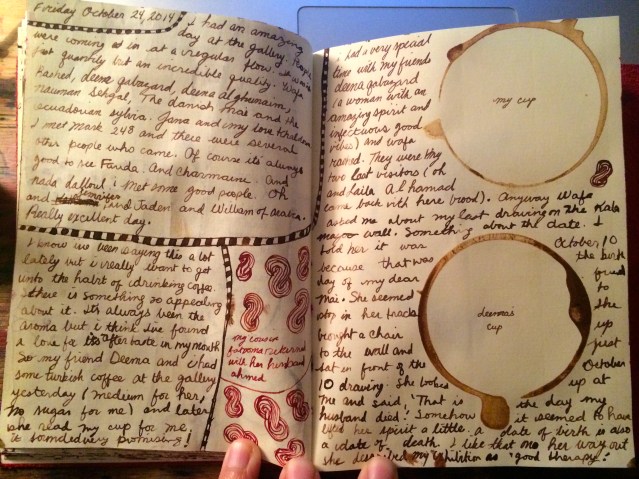 Friday October 24, 2014
I had an amazing
day at the gallery. People
were coming in at a regular flow. It wasn't
quantity but an incredible quality. Wafa
Rashed, deena qabazard, deena alghunaim,
Nauman Sehgal, The danish Mai and the
ecuadorian sylvia. Jana and my love Khalson
I met Mark 248 and there were several
other people who came. Of course its always
good to see Farida. And Charmaine. And
nada dalloul. I met some good people. Oh
and Jennifer and Jaden and William of arabia.
Really excellent day.
I know ive been saying this a lot
lately but i really want to get
into the habit of drinking coffee.
There is something so appealing
about it. It's always been the
aroma but i think ive found
a love for its after taste in my mouth
So my friend Deema and i had
some turkish coffee at the gallery
yesterday (medium for her,
no sugar for me) and later
she read my cup for me,
it sounded very promising!
my cousin
fatoma
with her husband
ahmed
i had a very special
time with my friends
deena qabazard
(a woman with an
amazing spirit and
infectuous good
vibes) and wafa
rashed. They were my
two last visitors (oh
and laila Al hamad
came back with here brood). Anyway Wafa
asked me about my last drawing on the Kala
wall. Something about the date. I
told her it was October, 10
because that was the birth
day of my dear friend
Mai. She seemed to
stop in her tracks She
brought a chair up
to the wall and just
sat in front of the October
10 drawing. She looked up at
me and said, 'That is the day my
husband died.' Somehow it seemed to have
lifted her spirit a little. a date of birth is also
a date of death. I like that on her way out
she described my exhibition as 'good therapy.'
my cup
deema's
cup